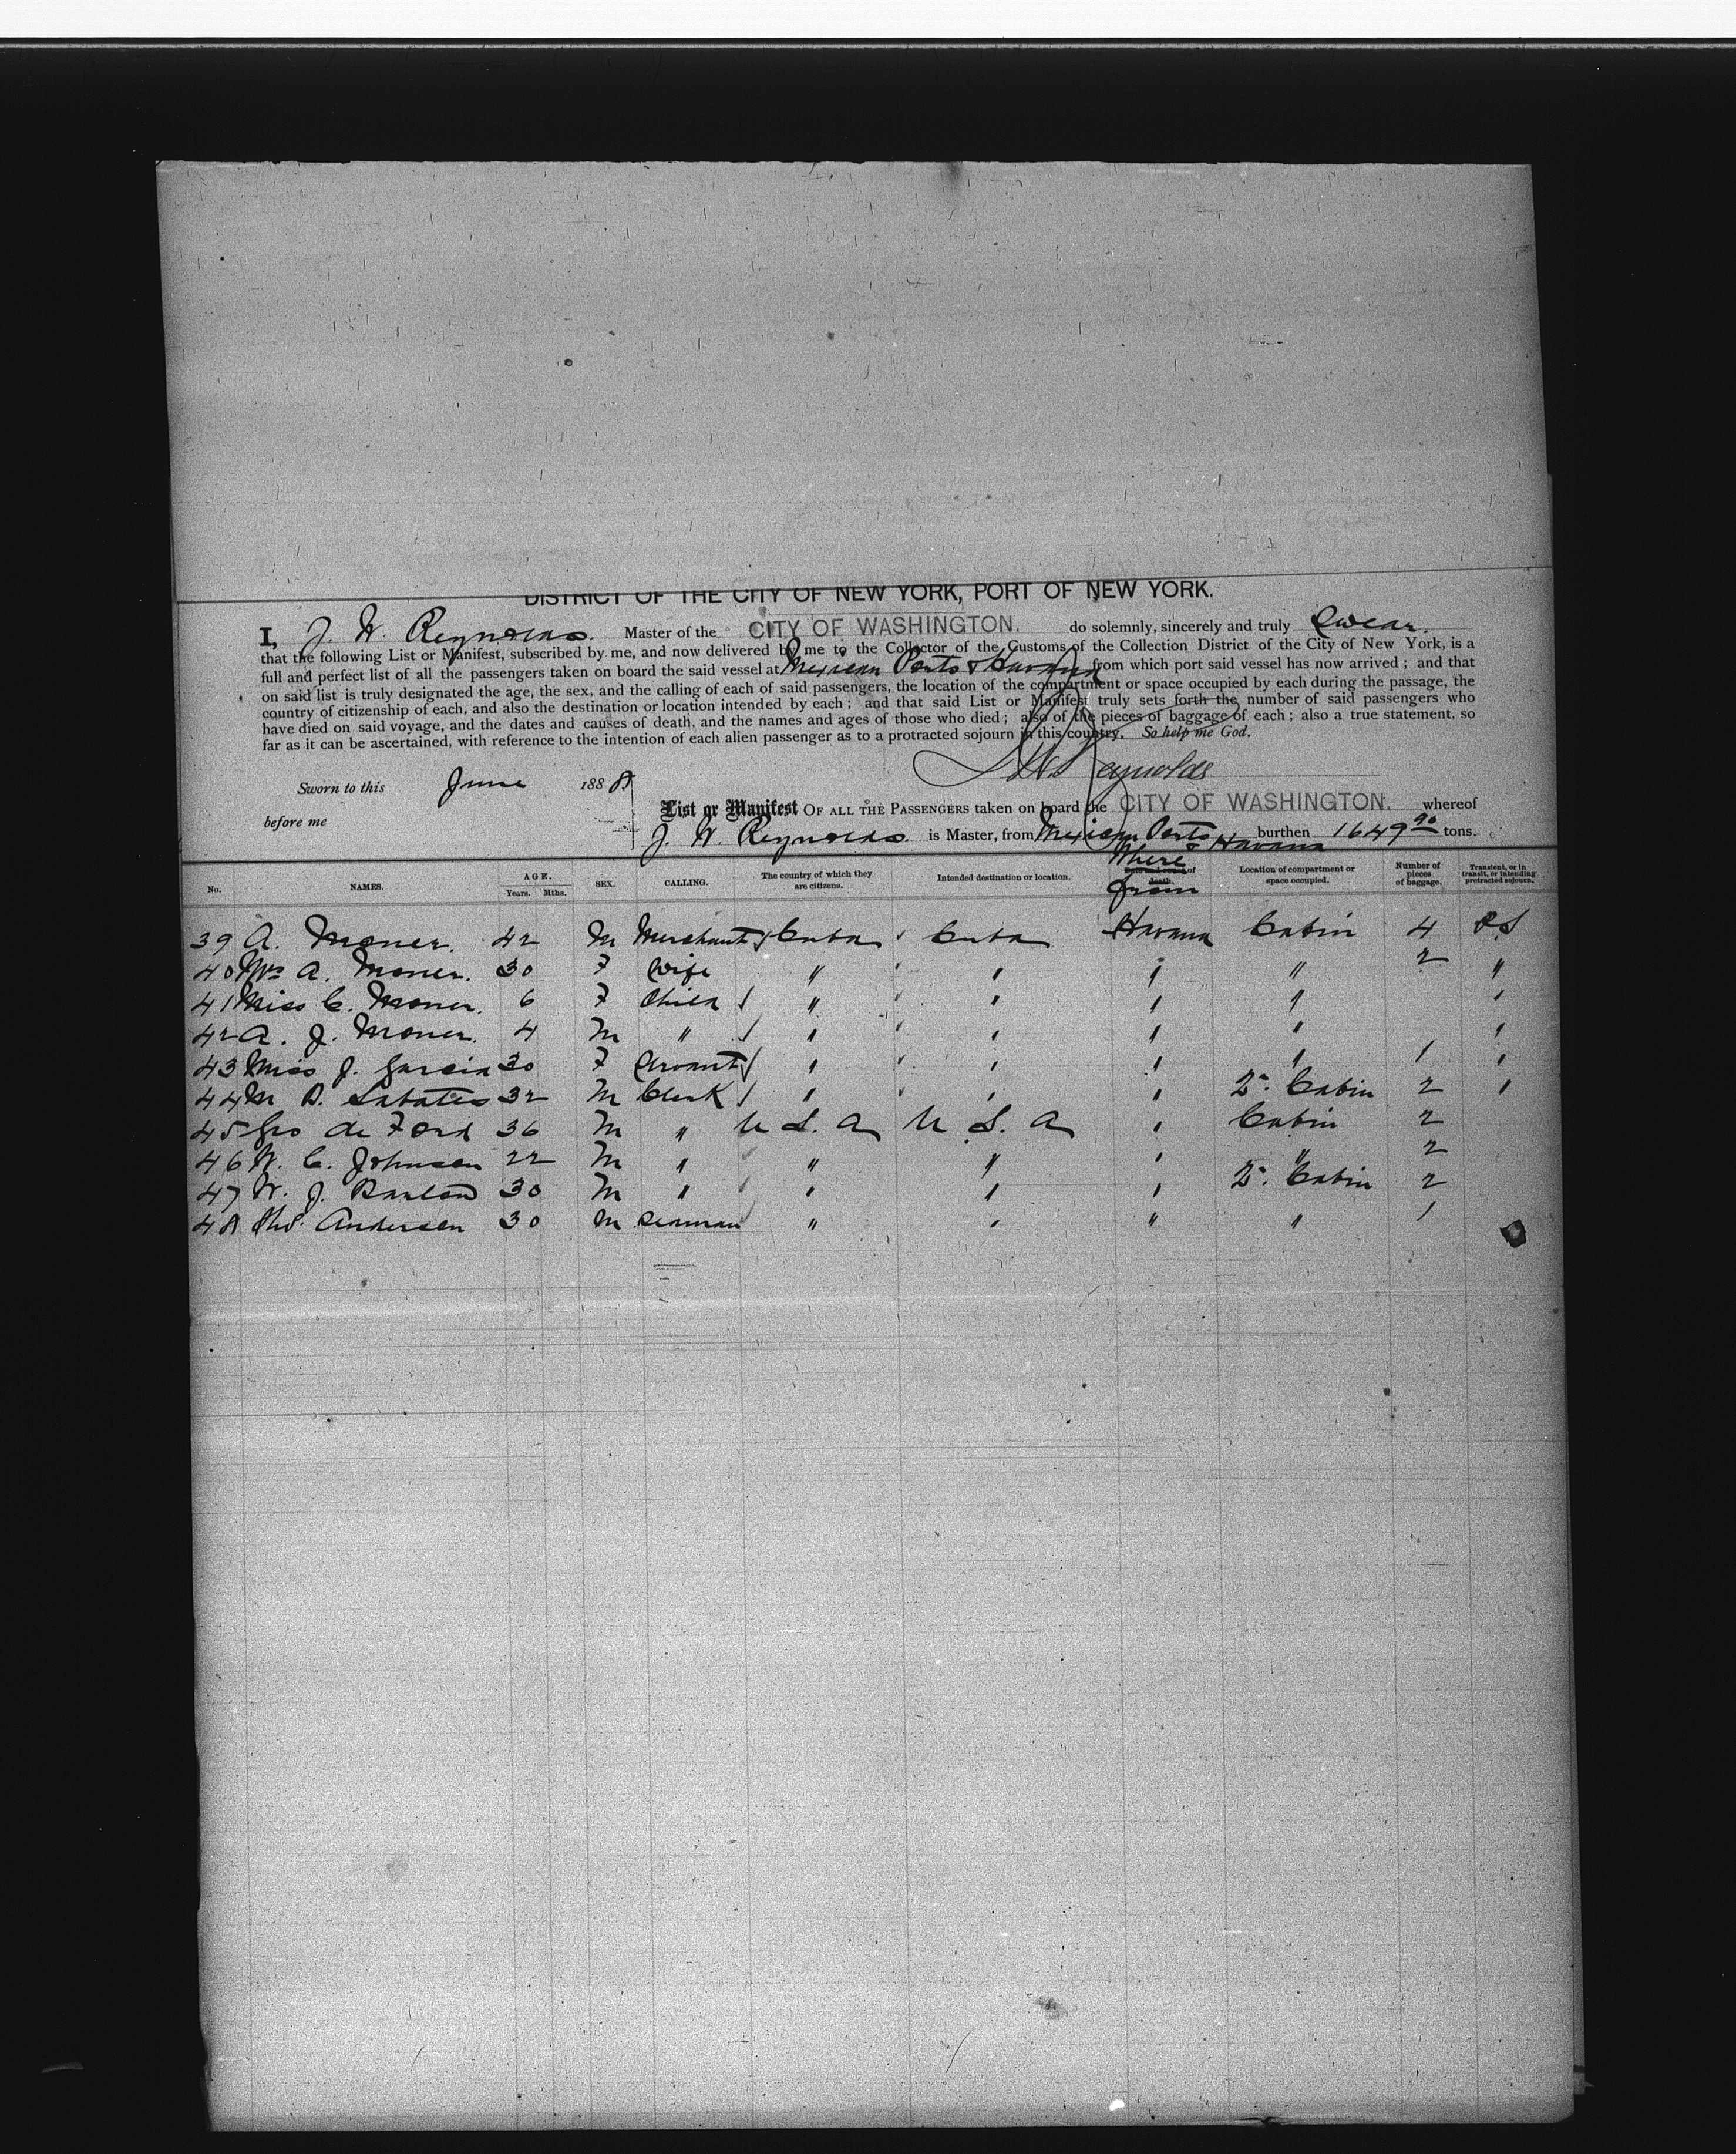 DISTRICT OF THE CITY OF NEW YORK, PORT OF NEW YORK.
I, J. W. Reynolds. Master of the CITY OF WASHINGTON. do solemnly, sincerely and truly Swear.
that the following List or Manifest, subscribed by me, and now delivered by me to the Collector of the Customs of the Collection District of the City of New York, is a
full and perfect list of all the passengers taken on board the said vessel at Mexican Ports & Havana from which port said vessel has now arrived; and that
on said list is truly designated the age, the sex, and the calling of each of said passengers, the location of the compartment or space occupied by each during the passage, the
country of citizenship of each, and also the destination or location intended by each; and that said List or Manifest truly sets forth the number of said passengers who
have died on said voyage, and the dates and causes of death, and the names and ages of those who died; also of the pieces of baggage of each; also a true statement, so
far as it can be ascertained, with reference to the intention of each alien passenger as to a protracted sojourn in this country. So help me God.
J W Reynolds
Sworn to this June 1888
before me
List or Manifest OF ALL THE PASSENGERS taken on board the CITY OF WASHINGTON. whereof
J. W. Reynolds. is Master, from Mexican Ports & Havana burthen 1649 90 tons.
No. NAMES. AGE. Years. Mths. SEX. CALLING. The country of which they are citizens. Intended destination or location. Where from Location of compartment or space occupied. Number of pieces of baggage. Transient, or in transit, or intending protracted sojourn.
39 A. Moner. 42 M Merchant Cuba Cuba Havana Cabin 4 P.S
40 Mrs A. Moner. 30 F Wife " " " " 2 "
41 Miss C. Moner. 6 F Child " " " " "
42 A. J. Moner. 4 M " " " " " "
43 Miss J. Garcia 30 F Servant " " " " 1 "
44 M D. Sabates 32 M Clerk " " " 2d. Cabin 2 "
45 Geo de Ford 36 M " U S. A U. S. A " Cabin 2
46 W. C. Johnson 22 M " " " " " 2
47 W. J. Barlow 30 M " " " " 2d. Cabin 2
48 Andersen 30 M Seaman " " " " 1